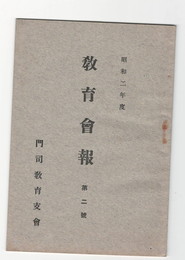 昭和二年度
教育會報
第二號
門司教育支會